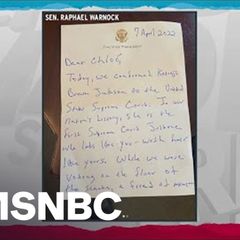 SEN. RAPHAEL WARNOCK
7 April 2022
Dear Chloé,
Today, we confirmed Ketanji
Brown Jackson to the United
States Supreme Court. In our
Nation's history, she is the
first Supreme Court Justice
who looks like you - with hair
like yours. While we were
voting on the floor of
the Senate, a friend of
MSNBC